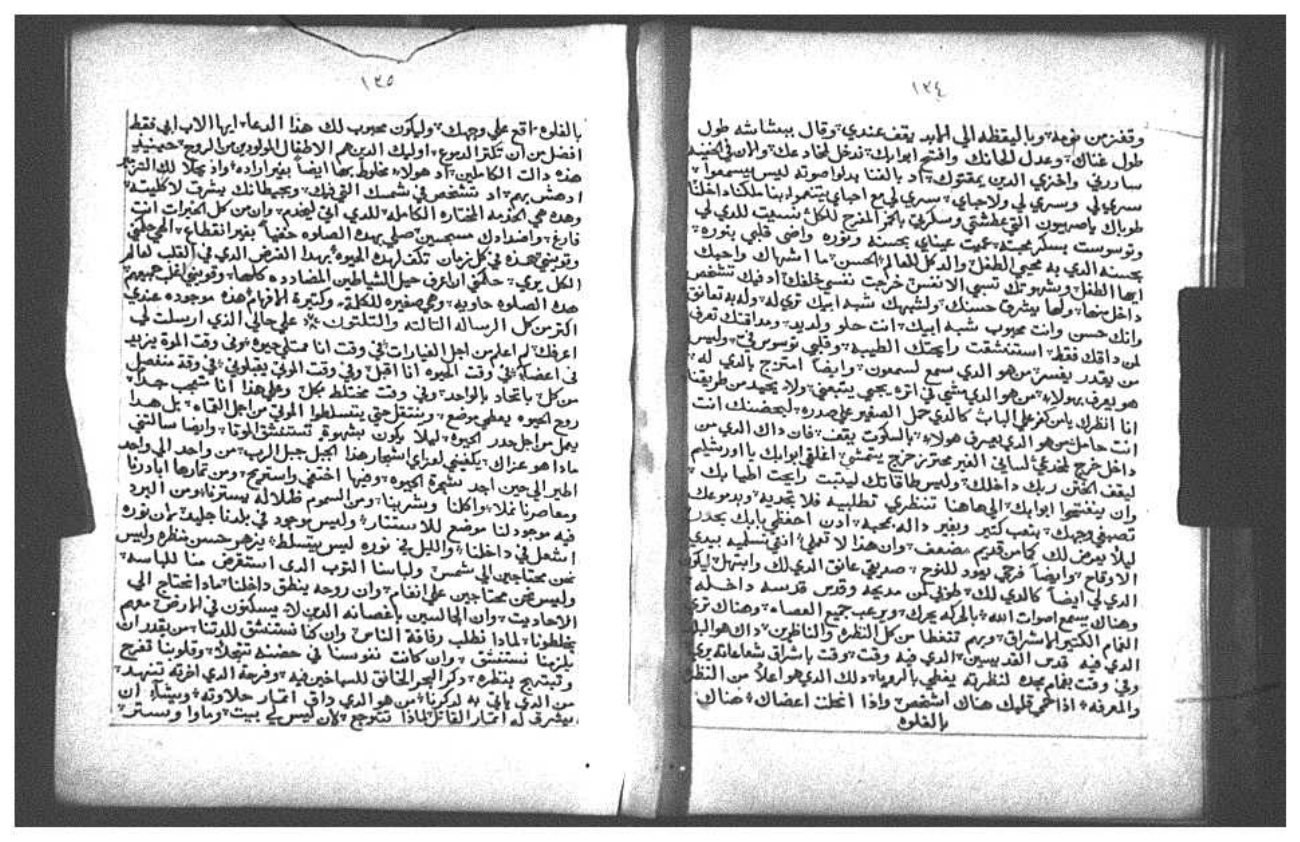 ١٣٤
وقفزمن نومه وباليقظه الي الابد يقف عندي وقال ببشاشه طول
طول غناك وعدل لحانك وافتح ابوابك تدخل لمخادعك والان في الخفيه
ساررني واخزي الدين يمقتوك اد بالغنا بدلواصوته ليس يسمعوا
سري لي وسري لي ولاحباي سري لي مع احباي يتنعموا بنا ملكنا داخلنا
طوباك ياصهيون التي عطشتي وسكرتي بالخمر المفرح للكل نسيت للدي لي
وتوسوست بسكر محبته عميت عيناي بحسنه ونوره واضى قلبي بنوره
بحسنه الدي به محيي الطفل والد كل العالم الحسن ما اشهاك واحبك
ايها الطفل وبشهوتك تسبي الانفس خرجت نفسي خلفك اد فيك تشخص
داخل منها ولها يشرق حسنك ولشبهك شبه ابيك تري له وله به تعانق
وانك حسن وانت محبوب شبه ابيك انت حلو ولديد ومداقتك تعرف
لمن داقك فقط استنشقت رايحتك الطيبه وقلبي توسوس في وليس
من يقدر يفسر من هو الدي سمع لسمعون وايضا امتزج بالدي له
هو يعرف بهولاء من هو الدي مشي في اتره يجي يتبعني ولا يحيد من طريقنا
انا انظرك يامن كنز على الباب كالدي حمل الصغير على صدره لبحضنك انت
انت حامل من هو الدي يعرف هولاء بالسكوت يقف فان داك الدي من
داخل خرج لخدعي لساني الغير محترز خرج يتمشي اغلقي ابوابك يااورشليم
ليقف الختن ربك داخلك وليس طاقاتك ليتبت رايحت اطيابك
وان ينفتحوا ابوابك الى هاهنا تنظري تطلبيه فلا تجديه وبدموعك
تصبغي وجهك بتعب كتير وبغير داله بمحبه ادن احفظي بابك بحدر
ليلا يعرض لك كما من قديم مضعف وان هذا لا تعملي انتي تسلميه بيدي
الاوقاح وايضا فرحي يعود للنوح صديقي عانق الدي لك وابتهل ليكون
الدي لي ايضا كالدي لك طوبي لمن مدبحه وقدس قدسه داخله
وهناك يسمع اصوات الله بالحركه يحرك ويرعب جميع العصاه وهناك تري
الغمام الكتير الاشراق وبهم تتغطا من كل النظره والناظرين داك هو البلد
الدي فيه قدس القديسين الدي فيه وقت وقت باشراق شعاعاته يري
وفي وقت بغمام مجده لنظرته يغطي بالرويا دلك الدي هو اعلا من النظر
والمعرفه اذا حمي قلبك هناك اشخص واذا انحلت اعضاك هناك
بالفلوه
١٣٥
بالفلوه اقع على وجهك وليكون محبوب لك هذا الدعا ايها الاب ابي فقط
افضل من ان تكتر الدموع اوليك الدين هم الاطفال المولودين من الروح حينيد
هده دالت الكاملين اد هولاء مخلوط بها ايضا بغير اراده واد يجلا لك النور
ادهش بهم اد تتشخص في شمسك التي فيك وبحيطانك يشرق لا كليته
وهده هي الخدمه المختاره الكامله للدي اتي ليخدم وان من كل الخيرات انت
فارغ واضدادك مسجسين صلي بهده الصلوه خفيا بغير انقطاع الهي حلمني
وقويني بهده في كل زمان تكف لهده الحيوه بهدا الغرض الدي في القلب لعالم
الكل يري حلمني ان اعرف حيل الشياطين المضادده كلها وقويني اغلب جميعهم
هده الصلوه حاويه وهي صغيره للكله وكتيرة الافهام هده موجوده عندي
اكتر من كل الرساله التالته والتلتون على حالي الذي ارسلت لي
اعرفك لم اعلم من اجل العبارات في وقت انا ممتلي حيره وفي وقت الموة يزيد
في اعضاي في وقت الحيوه انا اقبل وفي وقت الموتي يقبلوني في وقة منفصل
من كل باتحاد بالواحد وفي وقت مختلط بكل وعلى هذا انا متعجب جدا
روح الحيوه يعطي موضع وينتقل حتي يتسلطوا الموتي من اجل القاه بل هدا
يعمل من اجل حدر الحيوه ليلا يكون بشهوة تستنشق الموتا وايضا سالتني
مادا هو عزاك يكفيني لعزاي اشجار هذا الجبل جبل الرب من واحد الى واحد
اطير الى حين اجد شجرة الحيوه وفيها اختفي واستريح ومن تمارها ابادرنا
ومعاصرنا تملا واكلنا وبشربنا ومن السموم ظلاله يسترنا ومن البرد
فيه موجود لنا موضع للاستتار وليس موجود في بلدنا جليد لان نوره
اشعل في داخلنا والليل في نوره ليس يتسلط يزهر حسن بنظره وليس
نحن محتاجين الى شمس ولباسنا التوب الدى استقرض منا للباسه
وليس نحن محتاجين على انغام وان روحه ينطق داخلنا مادا نحتاج الى
الاحاديت وان الجالسين باغصانه الدين لا يسكتون في الارض معهم
يخلطونا لمادا نطلب رفاقة الناس وان كنا نستنشق للدتنا من يقدر ان
يلزمنا نستنشق وان كانت نفوسنا في حضنه تتجلا وقلوبنا تفرح
وتبتهج بنظره دكر البحر الخانق للسباحين فيه وفرحة الدي اخرته تنهد
من الدي ياتي به لدكرنا من هو الدي داق اتمار حلاوته ويشاء ان
يشرق له اتمار القاتل لماذا تتوجع لان ليس لي بيت وماوا وستر